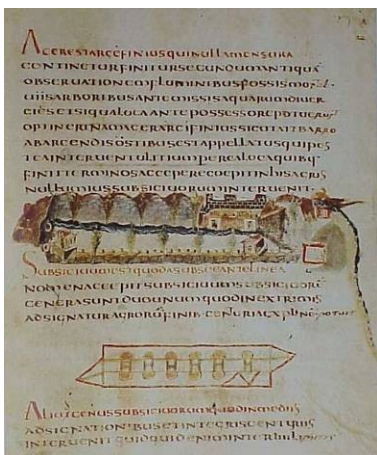 AGERESTARCEFINIUSQUINULLAMENSURA
CONTINETURFINITURSECUNDUMANTIQUA
OBSERUATIONEMFLUMINIBUSFOSSISMONTI
UIISARBORIBUSANTEMISSISAQUARUMDIUER
CIESETSIQUALOCAANTEPOSSESSOREPOTUER
OPTINERINAMACERARCIFINIUSSICUTAITBARRO
ABARCENDISOSTIBUSESTAPPELLATUSQUIPOS
TEAINTERUENTULITIUMPEREALOCAQUIBUS
FINITTERMINOSACCEPERECOEPITINHISACRIS
NULLUMIUSSUBSICIUORUMINTERUENIT
SUBSICIUUMESTQUODASUBSECANTELINEA
NOMENACCEPITSUBSICIUUM
CENERASUNTDUOUNUMQUODINEXTREMIS
ADSIGNATORUMAGRORUMFINIB
ALIUTGENUSSUBSICIUORUMQUODINMEDIIS
ADSIGNATIONIBUSETINTEGRISCENTURIIS
INTERUENITQUIDQUIDENIMINTER